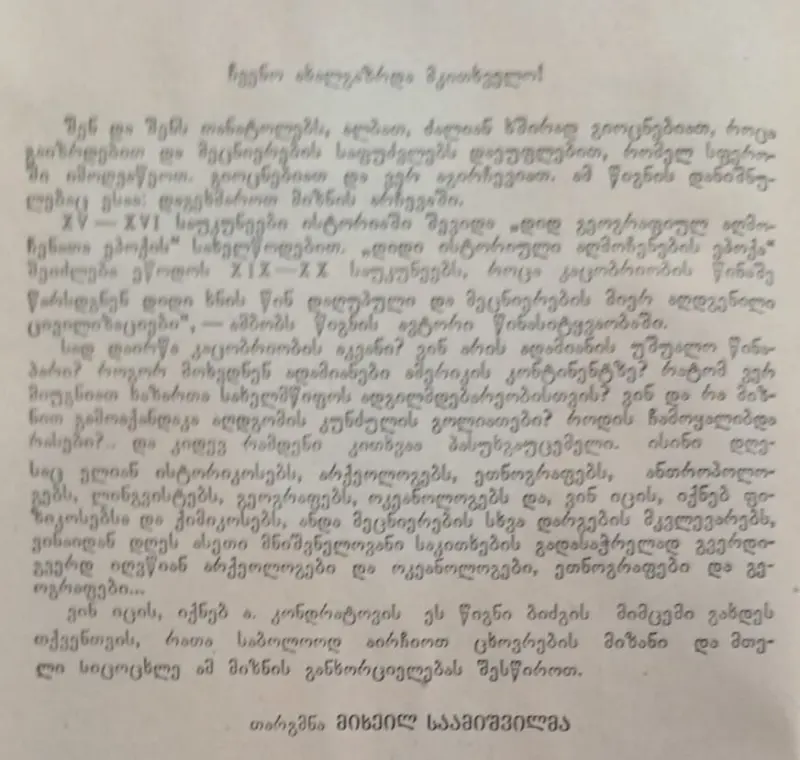 ჩვენო ახალგაზრდა მკითხველო!
შენ და შენს თანატოლებს, ალბათ, ძალიან ხშირად გიოცნებიათ, როცა
გაიზრდებით და მეცნიერების საფუძვლებს დაეუფლებით, რომელ სფერო-
ში იმოღვაწეოთ. გიოცნებიათ და ვერ აგირჩევიათ. ამ წიგნის დანიშნუ-
ლებაც ესაა: დაგეხმაროთ მიზნის არჩევაში.
XV — XVI საუკუნეები ისტორიაში შევიდა „დიდ გეოგრაფიულ აღმო-
ჩენათა ეპოქის“ სახელწოდებით. „დიდი ისტორიული აღმოჩენების ეპოქა“
შეიძლება ეწოდოს XIX—XX საუკუნეებს, როცა კაცობრიობის წინაშე
წარსდგნენ დიდი ხნის წინ დაღუპული და მეცნიერების მიერ აღდგენილი
ცივილიზაციები“, — ამბობს წიგნის ავტორი წინასიტყვაობაში.
სად დაირწა კაცობრიობის აკვანი? ვინ არის ადამიანის უშუალო წინა-
პარი? როგორ მოხვდნენ ადამიანები ამერიკის კონტინენტზე? რატომ ვერ
მიუგნიათ ხაზართა სახელმწიფოს ადგილმდებარეობისთვის? ვინ და რა მიზ-
ნით გამოაქანდაკა აღდგომის კუნძულის გოლიათები? როდის ჩამოყალიბდა
რასები?.. და კიდევ რამდენი კითხვაა პასუხგაუცემელი. ისინი დღე-
საც ელიან ისტორიკოსებს, არქეოლოგებს, ეთნოგრაფებს, ანთროპოლო-
გებს, ლინგვისტებს, გეოგრაფებს, ოკეანოლოგებს და, ვინ იცის, იქნებ ფი-
ზიკოსებსა და ქიმიკოსებს, ანდა მეცნიერების სხვა დარგების მკვლევარებს,
ვინაიდან დღეს ასეთი მნიშვნელოვანი საკითხების გადასაჭრელად გვერდი-
გვერდ იღვწიან არქეოლოგები და ოკეანოლოგები, ეთნოგრაფები და გე-
ოგრაფები...
ვინ იცის, იქნებ ა. კონდრატოვის ეს წიგნი ბიძგის მიმცემი გახდეს
თქვენთვის, რათა საბოლოოდ აირჩიოთ ცხოვრების მიზანი და მთე-
ლი სიცოცხლე ამ მიზნის განხორციელებას შესწიროთ.
თარგმნა მიხეილ საამიშვილმა